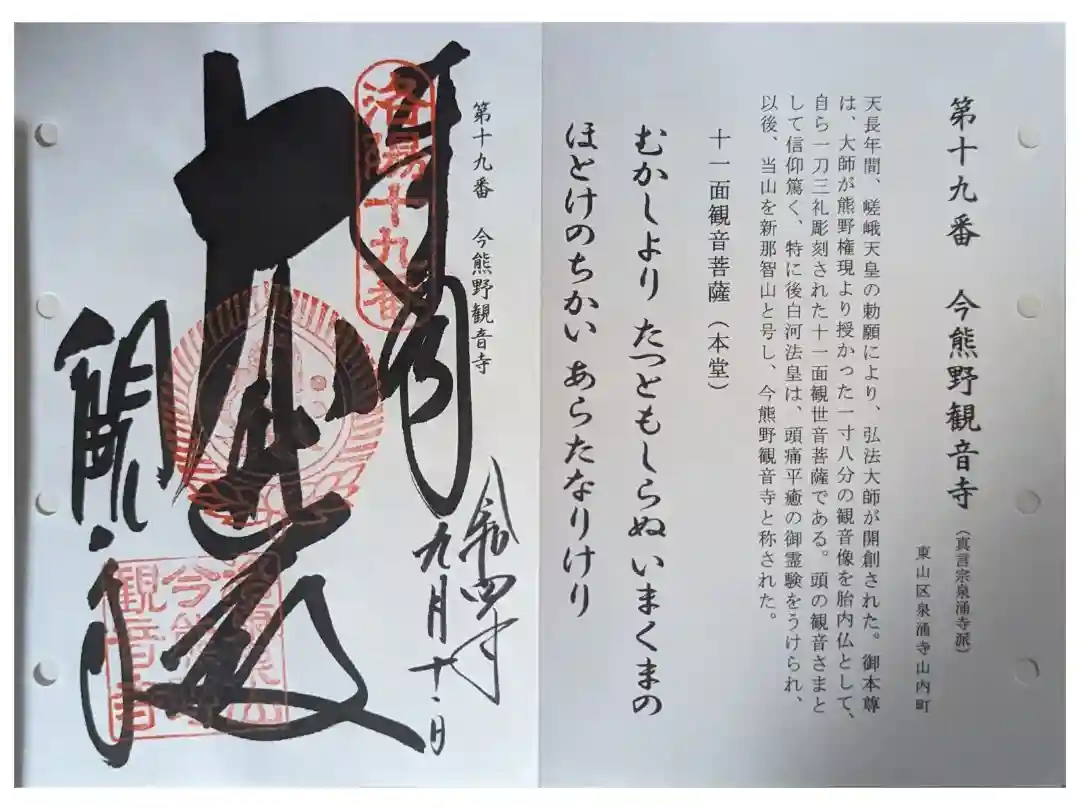 第十九番 今熊野観音寺（真言宗泉涌寺派）
東山区泉涌寺山内町
天長年間、嵯峨天皇の勅願により、弘法大師が開創された。御本尊
は、大師が熊野権現より授かった一寸八分の観音像を胎内仏として、
自ら一刀三礼彫刻された十一面観世音菩薩である。頭の観音さまと
して信仰篤く、特に後白河法皇は、頭痛平癒の御霊験をうけられ、
以後、当山を新那智山と号し、今熊野観音寺と称された。
十一面観音菩薩（本堂）
むかしより たつともしらぬ いまくまの
ほとけのちかい あらたなりけり
第十九番 今熊野観音寺
洛陽十九番
令和四年
九月十一日
今熊野
観音寺